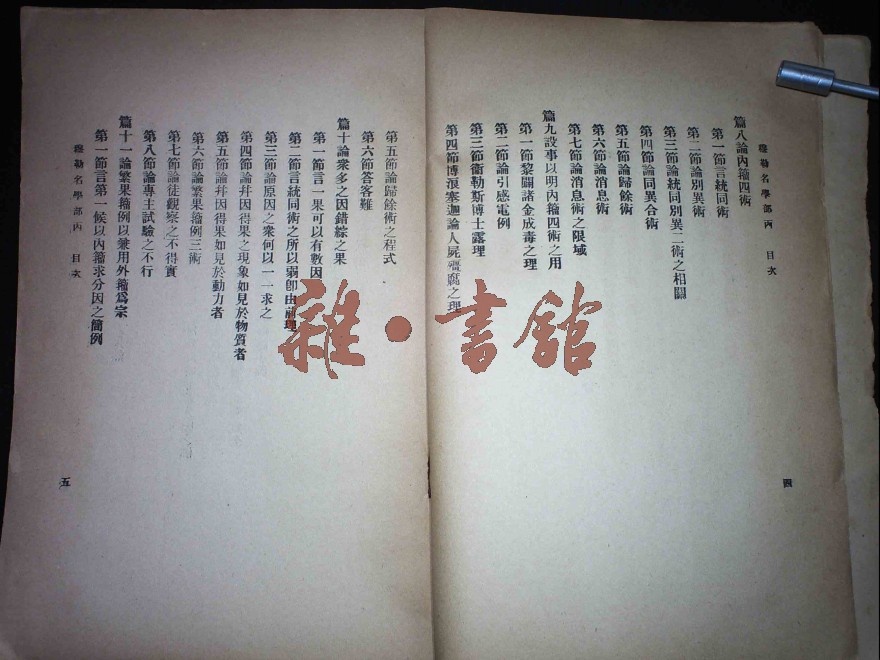 穆勒名學部丙 目次
篇八論內籀四術
第一節言統同術
第二節論別異術
第三節論統同別異二術之相關
第四節論同異合術
第五節論歸餘術
第六節論消息術
第七節論消息術之限域
篇九設事以明內籀四術之用
第一節黎闢諸金成毒之理
第二節論引感電例
第三節衞勒斯博士露理
第四節博浪塞迦論人屍殭腐之理
四
第五節論歸餘術之程式
第六節答客難
篇十論衆多之因錯綜之果
第一節言一果可以有數因
第二節言統同術之所以弱卽由前理
第三節論原因之衆何以一一求之
第四節論幷因得果之現象如見於物質者
第五節論幷因得果如見於動力者
第六節論繁果籀例三術
第七節論徒觀察之不得實
第八節論專主試驗之不行
篇十一論繁果籀例以兼用外籀爲宗
第一節言第一候以內籀求分因之簡例
穆勒名學部丙 目次
五
雜·書館